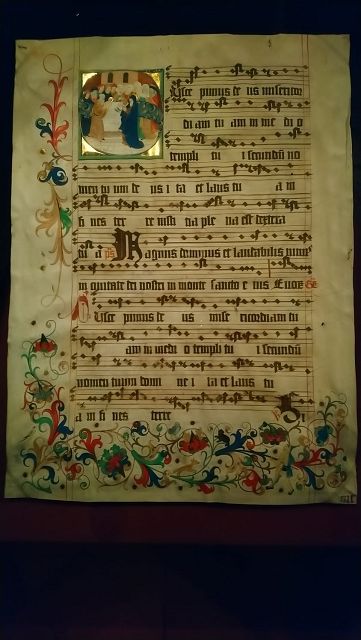 Usce pimus de us misericor
di am tu am in me di o
templi tu i secundū no
men tu um de us i ta et laus tu a in
fi nes ter re iusti tia ple na est dextera
tu a ps Magnus dominus et laudabilis nimis
in ciuitate dei nostri in monte sancto e ius Euoe
Usce pimus de us mise ricordiam tu
am in medi o templi tu i secundū
nomen tuum domi ne i ta et laus tu
a in fi nes terre